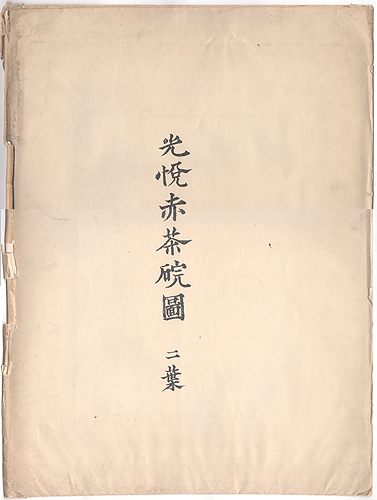 光悅赤茶碗圖 二葉